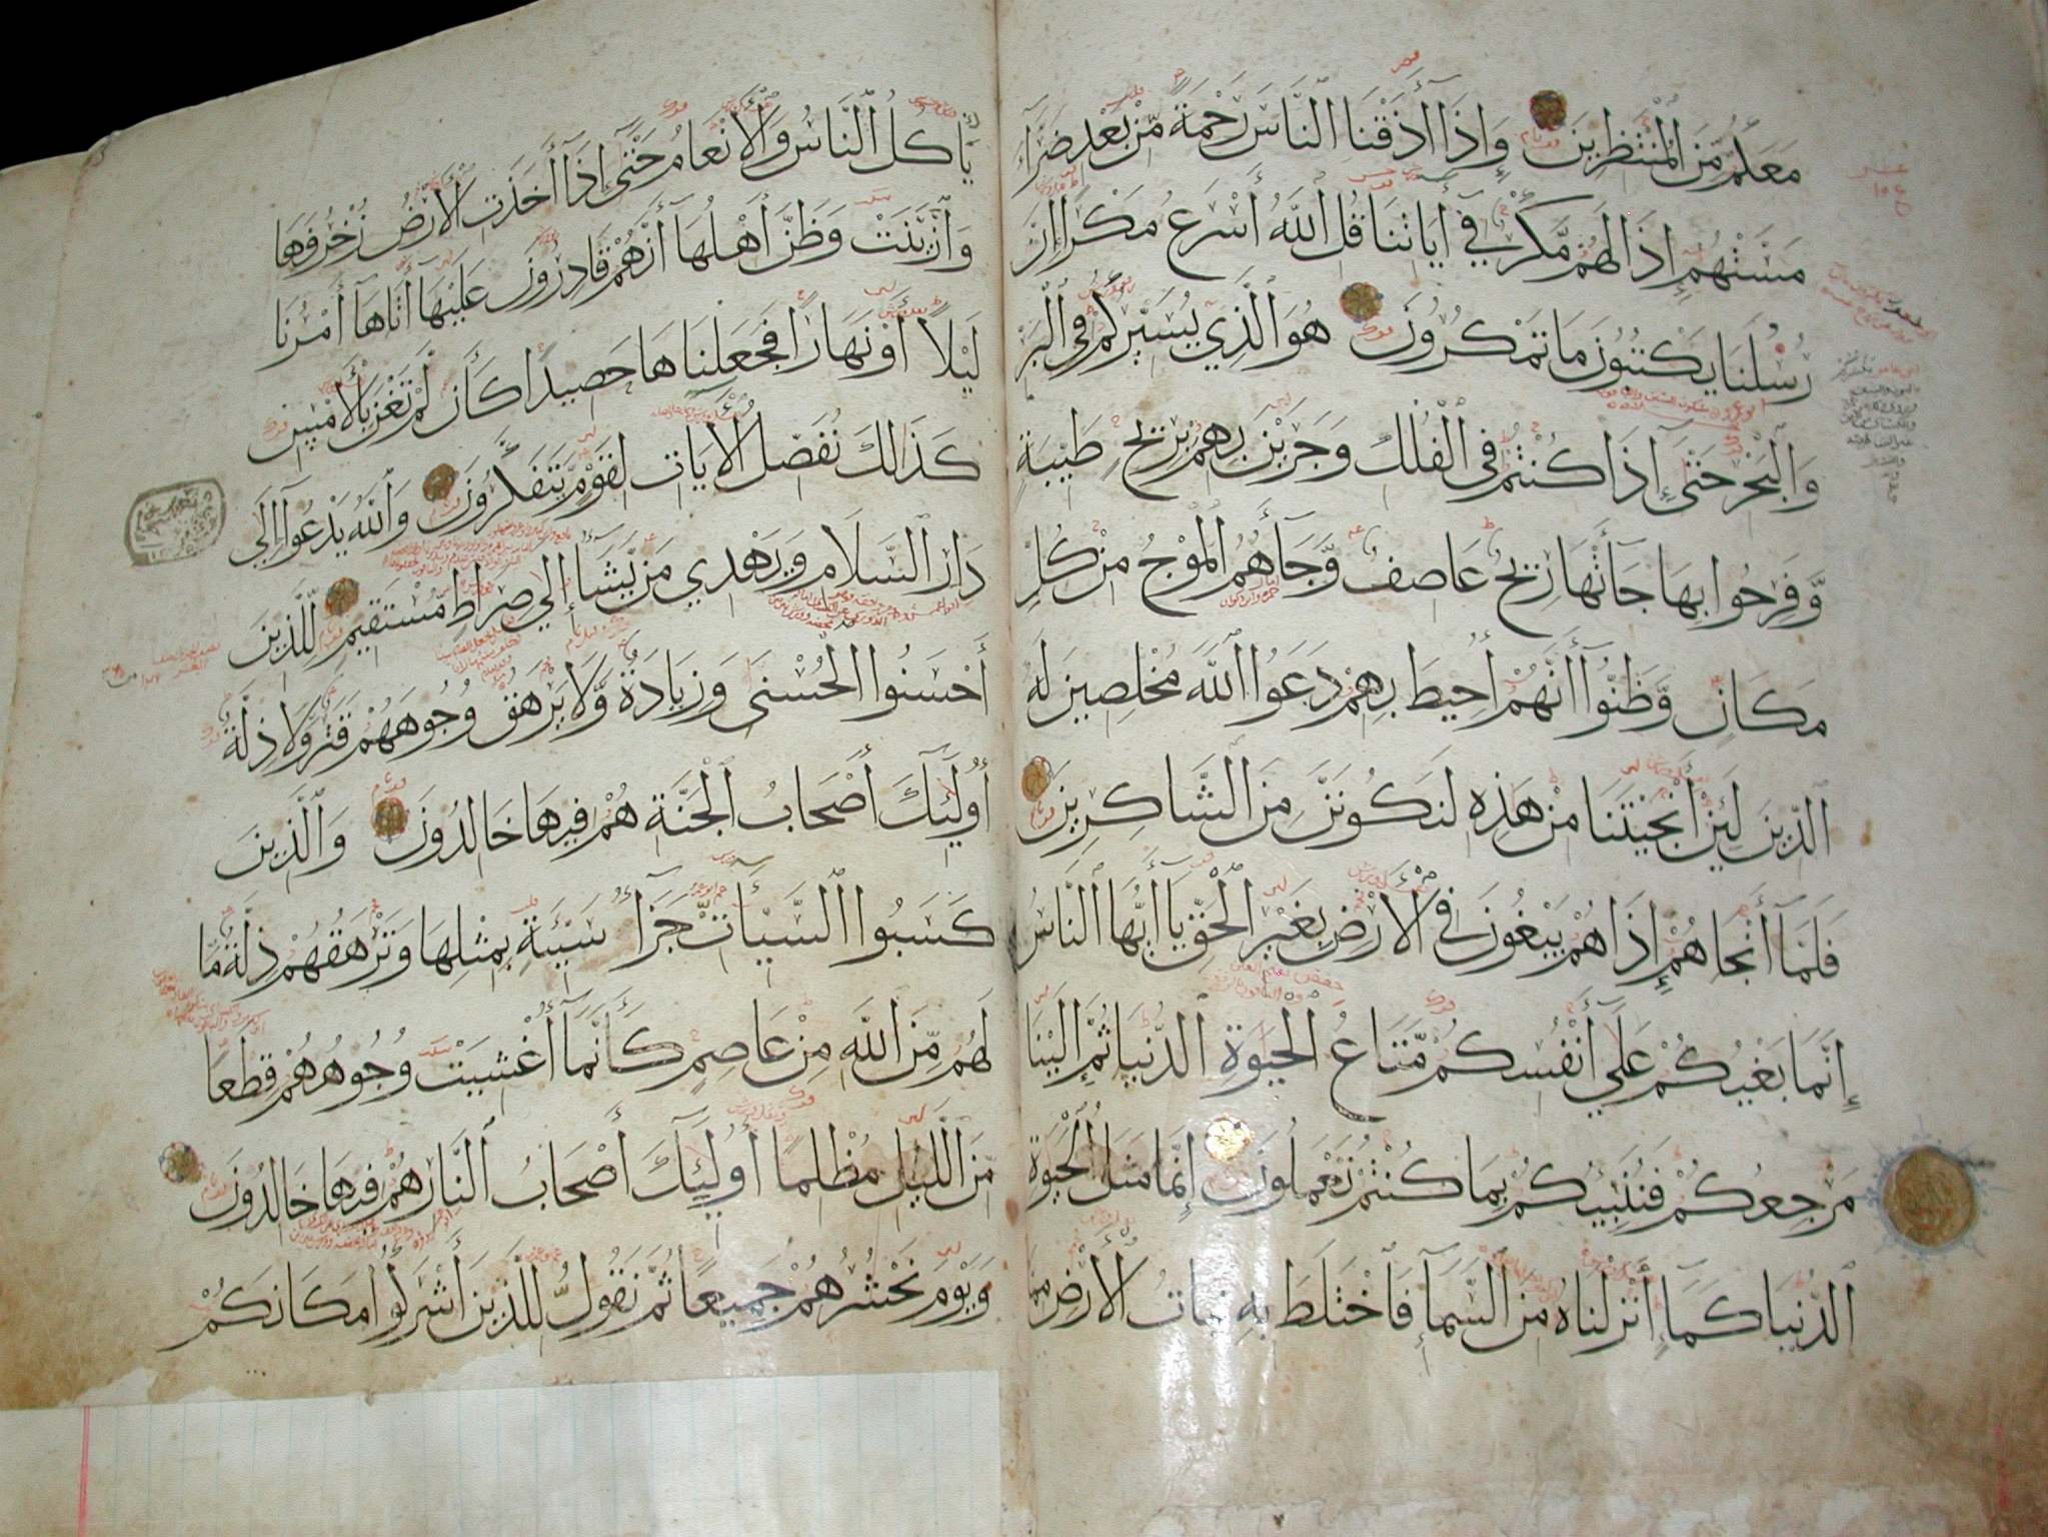 مَعَكُم مِّنَ الْمُنْتَظِرِينَ وَإِذَا أَذَقْنَا النَّاسَ رَحْمَةً مِّنْ بَعْدِ ضَرَّآءَ
مَسَّتْهُمْ إِذَا لَهُم مَّكْرٌ فِي آيَاتِنَا قُلِ اللَّهُ أَسْرَعُ مَكْرًا إِنَّ
رُسُلَنَا يَكْتُبُونَ مَا تَمْكُرُونَ هُوَ الَّذِي يُسَيِّرُكُمْ فِي الْبَرِّ
وَالْبَحْرِ حَتَّى إِذَا كُنْتُمْ فِي الْفُلْكِ وَجَرَيْنَ بِهِمْ بِرِيحٍ طَيِّبَةٍ
وَّفَرِحُوا بِهَا جَآءَتْهَا رِيحٌ عَاصِفٌ وَّجَآءَهُمُ الْمَوْجُ مِنْ كُلِّ
مَكَانٍ وَّظَنُّوا أَنَّهُمْ أُحِيطَ بِهِمْ دَعَوُا اللَّهَ مُخْلِصِينَ لَهُ
الدِّينَ لَئِنْ أَنْجَيْتَنَا مِنْ هَذِهِ لَنَكُونَنَّ مِنَ الشَّاكِرِينَ
فَلَمَّآ أَنْجَاهُمْ إِذَا هُمْ يَبْغُونَ فِي الْأَرْضِ بِغَيْرِ الْحَقِّ يَا أَيُّهَا النَّاسُ
إِنَّمَا بَغْيُكُمْ عَلَى أَنْفُسِكُمْ مَّتَاعُ الْحَيَوةِ الدُّنْيَا ثُمَّ إِلَيْنَا
مَرْجِعُكُمْ فَنُنَبِّئُكُمْ بِمَا كُنْتُمْ تَعْمَلُونَ إِنَّمَا مَثَلُ الْحَيَوةِ
الدُّنْيَا كَمَآءٍ أَنْزَلْنَاهُ مِنَ السَّمَآءِ فَاخْتَلَطَ بِهِ نَبَاتُ الْأَرْضِ مِمَّا
يَأْكُلُ النَّاسُ وَالْأَنْعَامُ حَتَّى إِذَآ أَخَذَتِ الْأَرْضُ زُخْرُفَهَا
وَازَّيَّنَتْ وَظَنَّ أَهْلُهَآ أَنَّهُمْ قَادِرُونَ عَلَيْهَآ أَتَاهَآ أَمْرُنَا
لَيْلًا أَوْ نَهَارًا فَجَعَلْنَاهَا حَصِيدًا كَأَنْ لَّمْ تَغْنَ بِالْأَمْسِ
كَذَلِكَ نُفَصِّلُ الْآيَاتِ لِقَوْمٍ يَتَفَكَّرُونَ وَاللَّهُ يَدْعُوا إِلَى
دَارِ السَّلَامِ وَيَهْدِي مَن يَّشَآءُ إِلَى صِرَاطٍ مُسْتَقِيمٍ لِّلَّذِينَ
أَحْسَنُوا الْحُسْنَى وَزِيَادَةٌ وَّلَا يَرْهَقُ وُجُوهَهُمْ قَتَرٌ وَّلَا ذِلَّةٌ
أُولَئِكَ أَصْحَابُ الْجَنَّةِ هُمْ فِيهَا خَالِدُونَ وَالَّذِينَ
كَسَبُوا السَّيِّئَاتِ جَزَآءُ سَيِّئَةٍ بِمِثْلِهَا وَتَرْهَقُهُمْ ذِلَّةٌ مَّا
لَهُم مِّنَ اللَّهِ مِنْ عَاصِمٍ كَأَنَّمَآ أُغْشِيَتْ وُجُوهُهُمْ قِطَعًا
مِّنَ اللَّيْلِ مُظْلِمًا أُولَئِكَ أَصْحَابُ النَّارِ هُمْ فِيهَا خَالِدُونَ
وَيَوْمَ نَحْشُرُهُمْ جَمِيعًا ثُمَّ نَقُولُ لِلَّذِينَ أَشْرَكُوا مَكَانَكُمْ